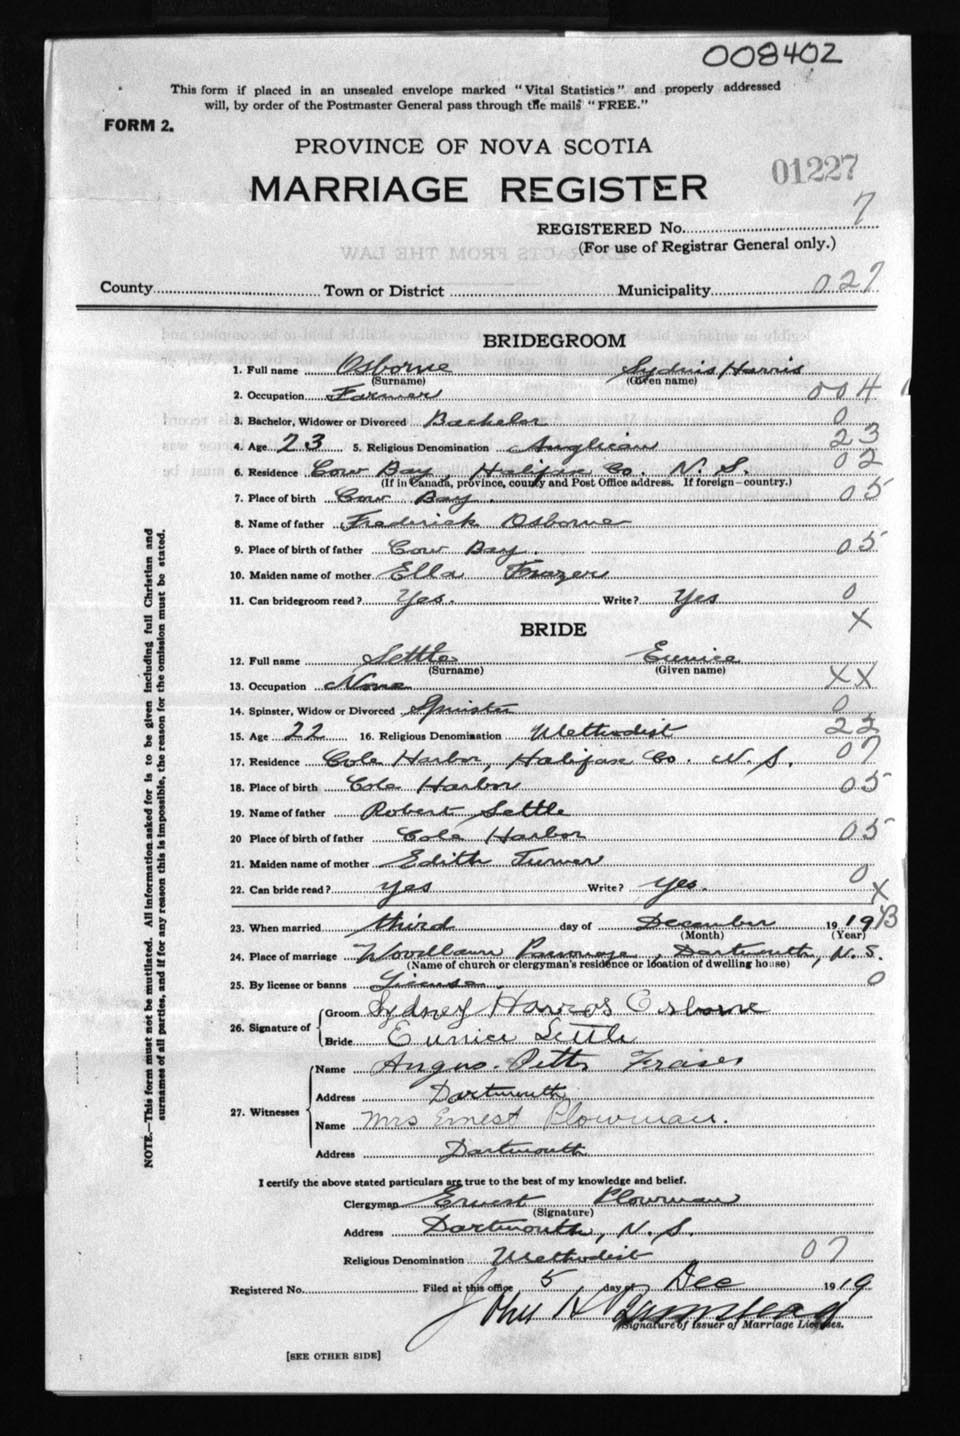 008402
This form if placed in an unsealed envelope marked "Vital Statistics" and properly addressed
will, by order of the Postmaster General pass through the mails "FREE."
FORM 2.
PROVINCE OF NOVA SCOTIA
01227
MARRIAGE REGISTER
REGISTERED No. 7
(For use of Registrar General only.)
EXTRACTS FROM THE LAW
County Town or District Municipality 027
BRIDEGROOM
1. Full name Osborne Harris
(Surname) (Given name)
2. Occupation Farmer 004
3. Bachelor, Widower or Divorced Bachelor 0
4. Age 23 5. Religious Denomination Anglican 23
6. Residence Cow Bay Halifax Co. N. S. 02
(If in Canada, province, county and Post Office address. If foreign—country.)
7. Place of birth Cow Bay. 05
8. Name of father Frederick Osborne
9. Place of birth of father Cow Bay. 05
10. Maiden name of mother Ella Frazer
11. Can bridegroom read? Yes. Write? Yes 0
BRIDE X
12. Full name Settle Eunice
(Surname) (Given name)
13. Occupation None XX
14. Spinster, Widow or Divorced Spinster 0
15. Age 22 16. Religious Denomination Methodist 22
17. Residence Cole Harbor, Halifax Co. N. S. 07
18. Place of birth Cole Harbor 05
19. Name of father Robert Settle
20 Place of birth of father Cole Harbor 05
21. Maiden name of mother Edith Turner
22. Can bride read? yes Write? yes. 0
X
23. When married third day of December 1919
(Month) (Year)
24. Place of marriage Woodlawn Parsonage, Dartmouth, N. S.
(Name of church or clergyman's residence or location of dwelling house)
25. By license or banns License. 0
26. Signature of Groom Sydney Osborne
Bride Eunice Settle
27. Witnesses Name Angus Fraser
Address Dartmouth
Name Mrs Ernest Plowman.
Address Dartmouth
I certify the above stated particulars are true to the best of my knowledge and belief.
Clergyman Ernest Plowman
(Signature)
Address Dartmouth, N. S.
Religious Denomination Methodist 07
Registered No. Filed at this office 5 day of Dec 1919
John
Signature of Issuer of Marriage Licenses.
[SEE OTHER SIDE]
NOTE.—This form must not be mutilated. All information asked for is to be given including full Christian and
surnames of all parties, and if for any reason this is impossible, the reason for the omission must be stated.